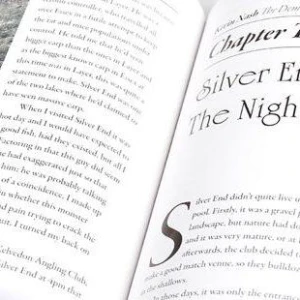 controller, who
over Essex in a futile attempt to
and mice population
control. He told me that he'd
bigger carp than the ones in Layer
the biggest known carp in Essex
this time was in Layer, this was quite a
statement to make. Silver End was one
of the two lakes where he'd claimed to
have seen massive carp.
When I visited Silver End it was
hot day and I would have expected to
good fish, had they existed, but all I
Factoring in that this guy did seem
had exaggerated just that
him; he was probably talking
of a coincidence. I made up
this monster
and pain trying to crack the
I turned my back on
Kelvedon Angling Club,
Silver End at 4pm that
Kevin Nash The Demon
Chapter
Silver En
The Nigh
Silver End didn't
pool. Firstly, it was a gravel
landscape, but nature had
and it was very mature, or at
afterwards, the club decided
make a good match venue, so they bulldo
the shallows.
those days, it was only the entrance